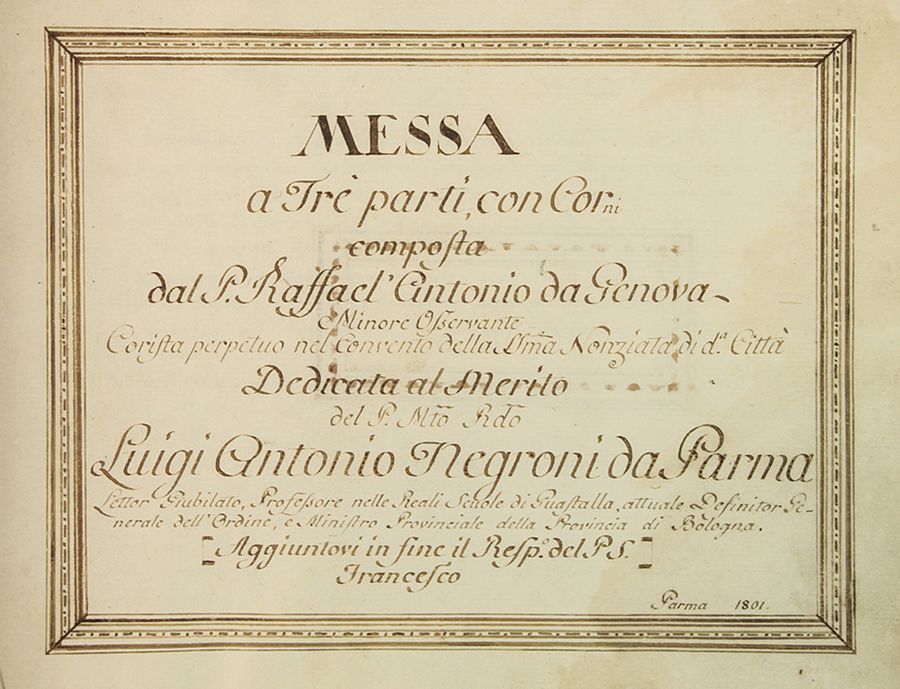 MESSA
a Trè parti, con Corni
composta
dal P. Raffael' Antonio da Genova
Minore Osservante
Corista perpetuo nel Convento della Ss̃ma Nonziata di d.ª Città
Dedicata al Merito
del P. Mt̃o Rd̃o
Luigi Antonio Negroni da Parma
Lettor Giubilato, Professore nelle Reali Scuole di Guastalla, attuale Definitor Ge-
nerale dell' Ordine, e Ministro Provinciale della Provincia di Bologna.
[Aggiuntovi in fine il Resp.º del P. S.]
Francesco
Parma 1801.